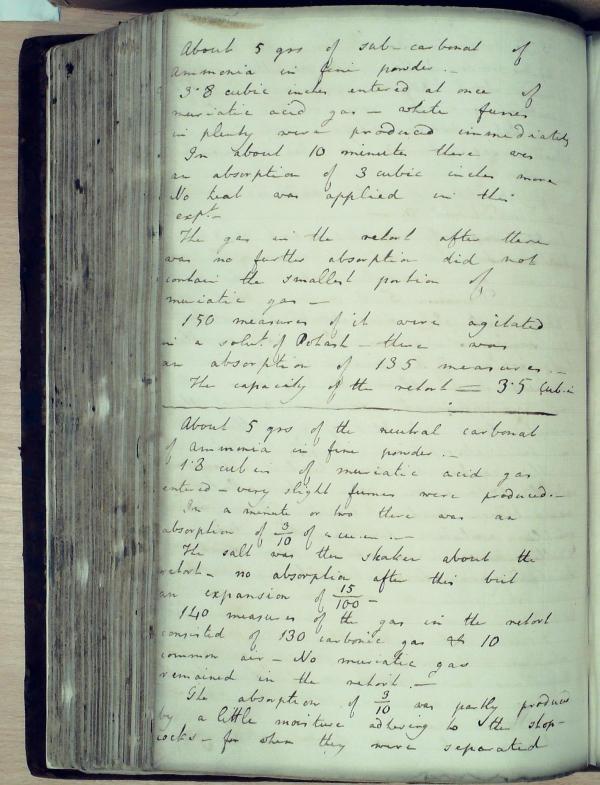 About 5 grs of sub-carbonat of
Ammonia in fine powder. –
3·8 cubic inches entered at once of
muriatic acid gas – white fumes
in plenty were produced immediately
In about 10 minutes there was
an absorption of 3 cubic inches more
No heat was applied in this
expt –
The gas in the retort after there
was no further absorption did not
contain the smallest portion of
muriatic gas –
150 measures of it were agitated
in a solut. of Potash – there was
an absorption of 135 measures. –
The capacity of the retort = 3·5 Cub. in
About 5 grs of the neutral carbonat
of Ammonia in fine powder. –
1·8 cub in of muriatic acid gas
entered – very slight fumes were produced. –
In a minute or two there was an
absorption of 3/10 of a cu. in. –
The salt was then shaken about the
retort – no absorption after this but
an expansion of 15/100 –
140 measures of the gas in the retort
consisted of 130 carbonic gas & 10
common air – No muriatic gas
remained in the retort. –
The absorption of 3/10 was partly produced
by a little moisture adhering to the stop-
cocks – for when they were separated